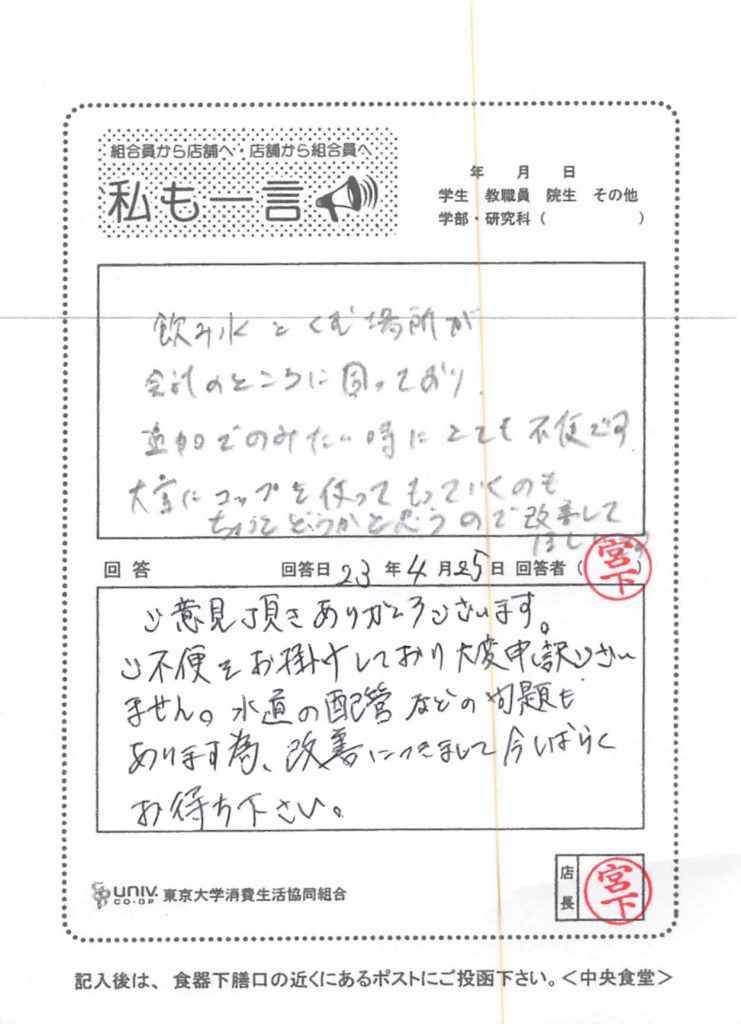 組合員から店舗へ・店舗から組合員へ
私も一言
年 月 日
学生 教職員 院生 その他
学部・研究科( )
飲み水をくむ場所が
会計のところに固っており、
追加でのみたい時にとても不便です。
大量にコップを使ってもっていくのも
ちょっとどうかと思うので改善して
ほしいです
回答 回答日 23年4月25日 回答者(宮下)
ご意見頂きありがとうございます。
ご不便をお掛けしており大変申し訳ござい
ません。水道の配管などの問題も
あります為、改善につきまして今しばらく
お待ち下さい。
UNIV. CO-OP 東京大学消費生活協同組合
店長 宮下
記入後は、食器下膳口の近くにあるポストにご投函下さい。<中央食堂>